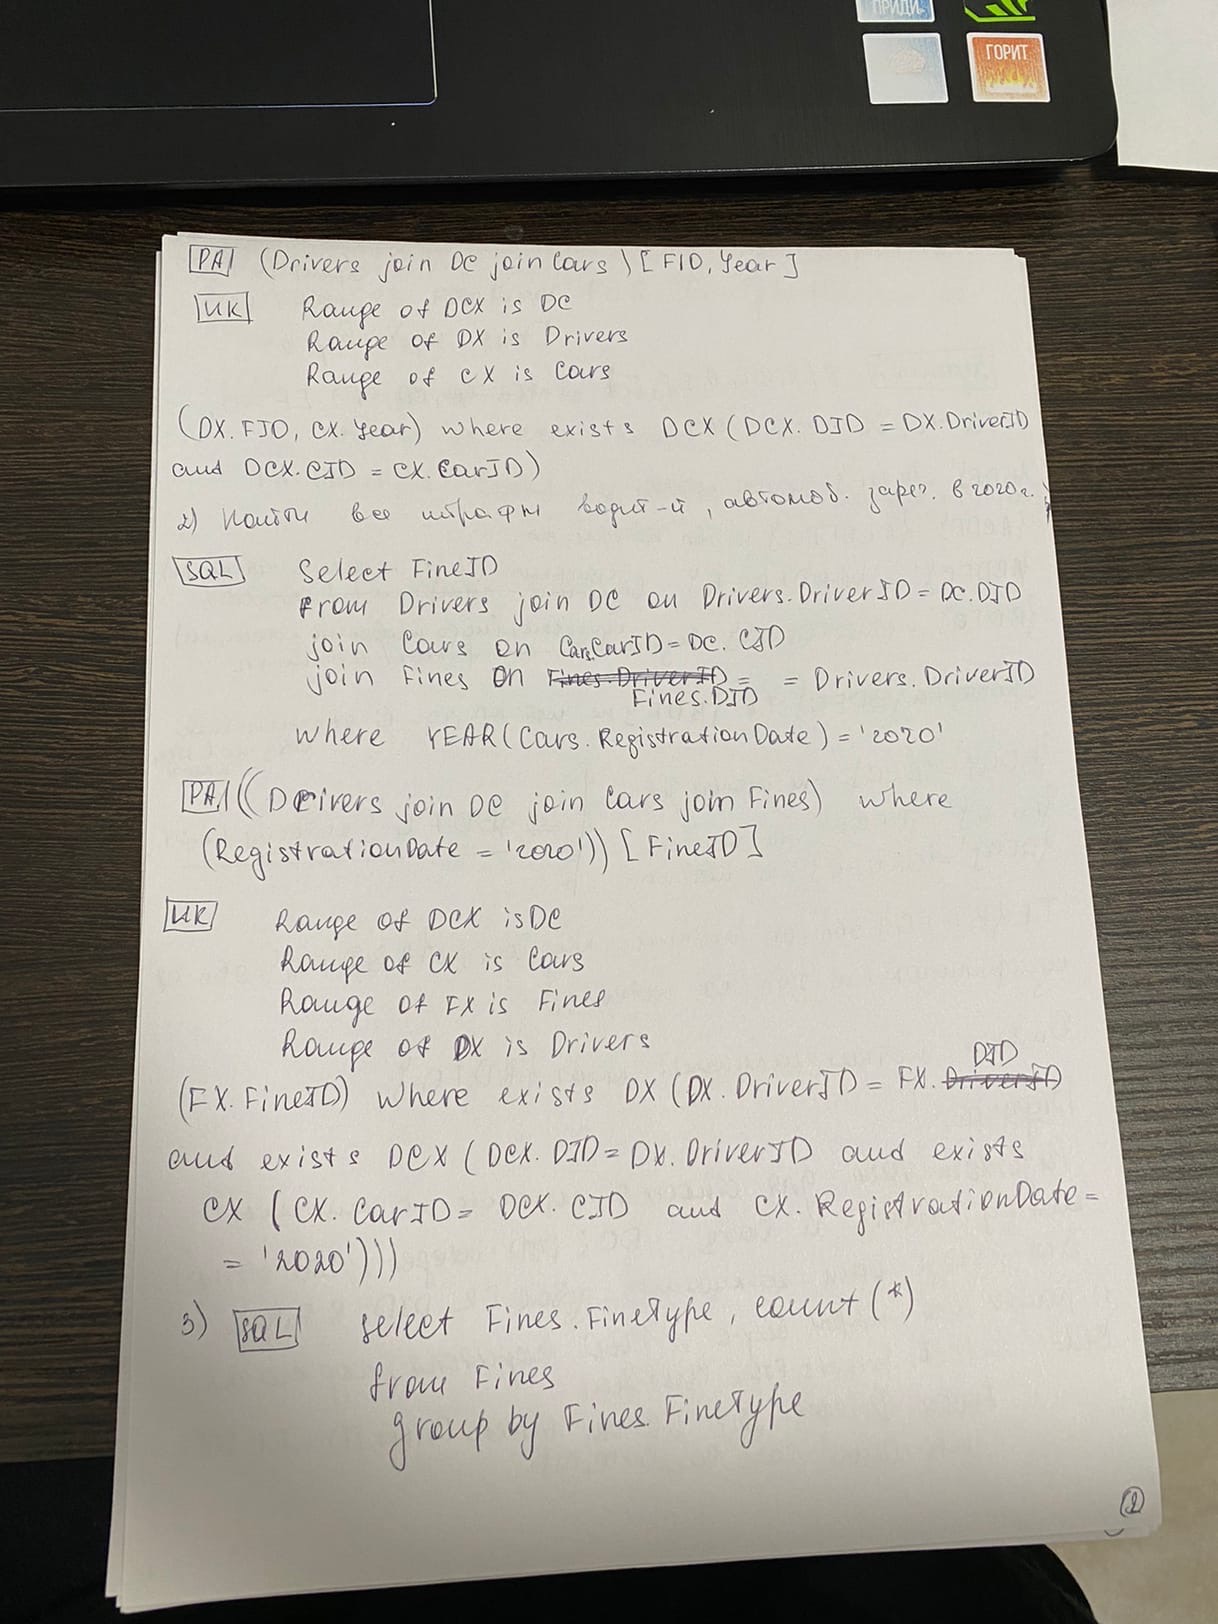 ПРИДИ
ГОРИТ
РА (Drivers join DC join Cars) [FIO, Year]
ИК Range of DCX is DC
Range of DX is Drivers
Range of CX is Cars
(DX.FIO, CX.Year) where exists DCX (DCX.DID = DX.DriverID
and DCX.CID = CX.CarID)
2) Найти все штрафы водит-й, автомоб. зарег. в 2020 г.
SQL Select FineID
from Drivers join DC on Drivers.DriverID = DC.DID
join Cars on Cars.CarID = DC.CID
join Fines on Fines.DriverID = = Drivers.DriverID
Fines.DID
where YEAR(Cars.RegistrationDate) = '2020'
РА ((Drivers join DC join Cars join Fines) where
(RegistrationDate = '2020')) [FineID]
ИК Range of DCX is DC
Range of CX is Cars
Range of FX is Fines
Range of DX is Drivers
DID
(FX.FineID) where exists DX (DX.DriverID = FX.DriverID
and exists DCX (DCX.DID = DX.DriverID and exists
CX (CX.CarID = DCX.CID and CX.RegistrationDate =
= '2020')))
3) SQL select Fines.FineType, count(*)
from Fines
group by Fines.FineType